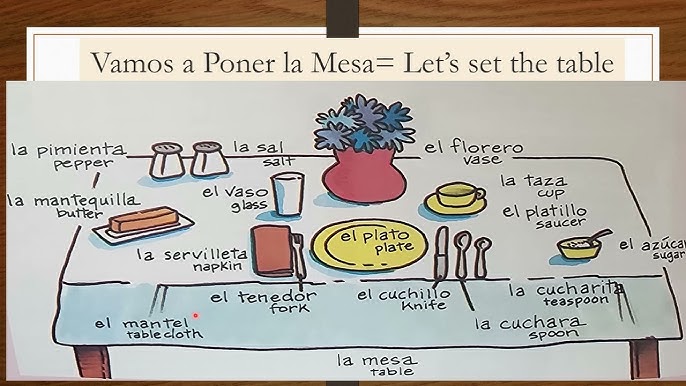 Vamos a Poner la Mesa= Let's set the table
la pimienta
pepper
la sal
salt
el florero
vase
la mantequilla
butter
el vaso
glass
la taza
cup
el platillo
saucer
la servilleta
napkin
el plato
plate
el azúcar
sugar
el tenedor
fork
el cuchillo
knife
la cucharita
teaspoon
el mantel
tablecloth
la cuchara
spoon
la mesa
table